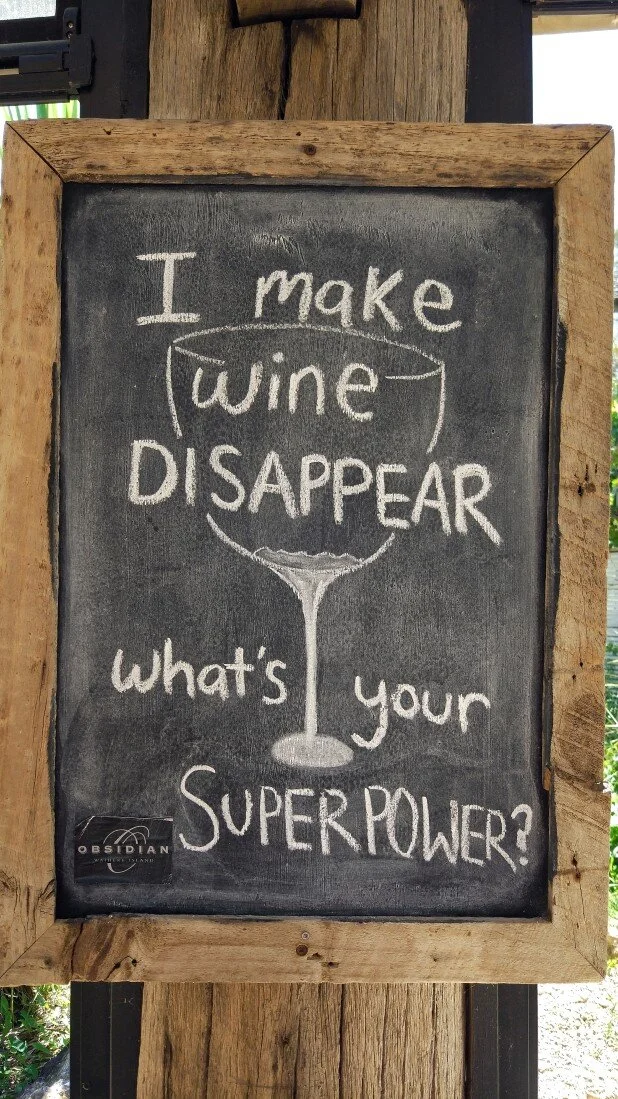 I make
wine
DISAPPEAR
what's your
SUPERPOWER?
OBSIDIAN
WAIHEKE ISLAND